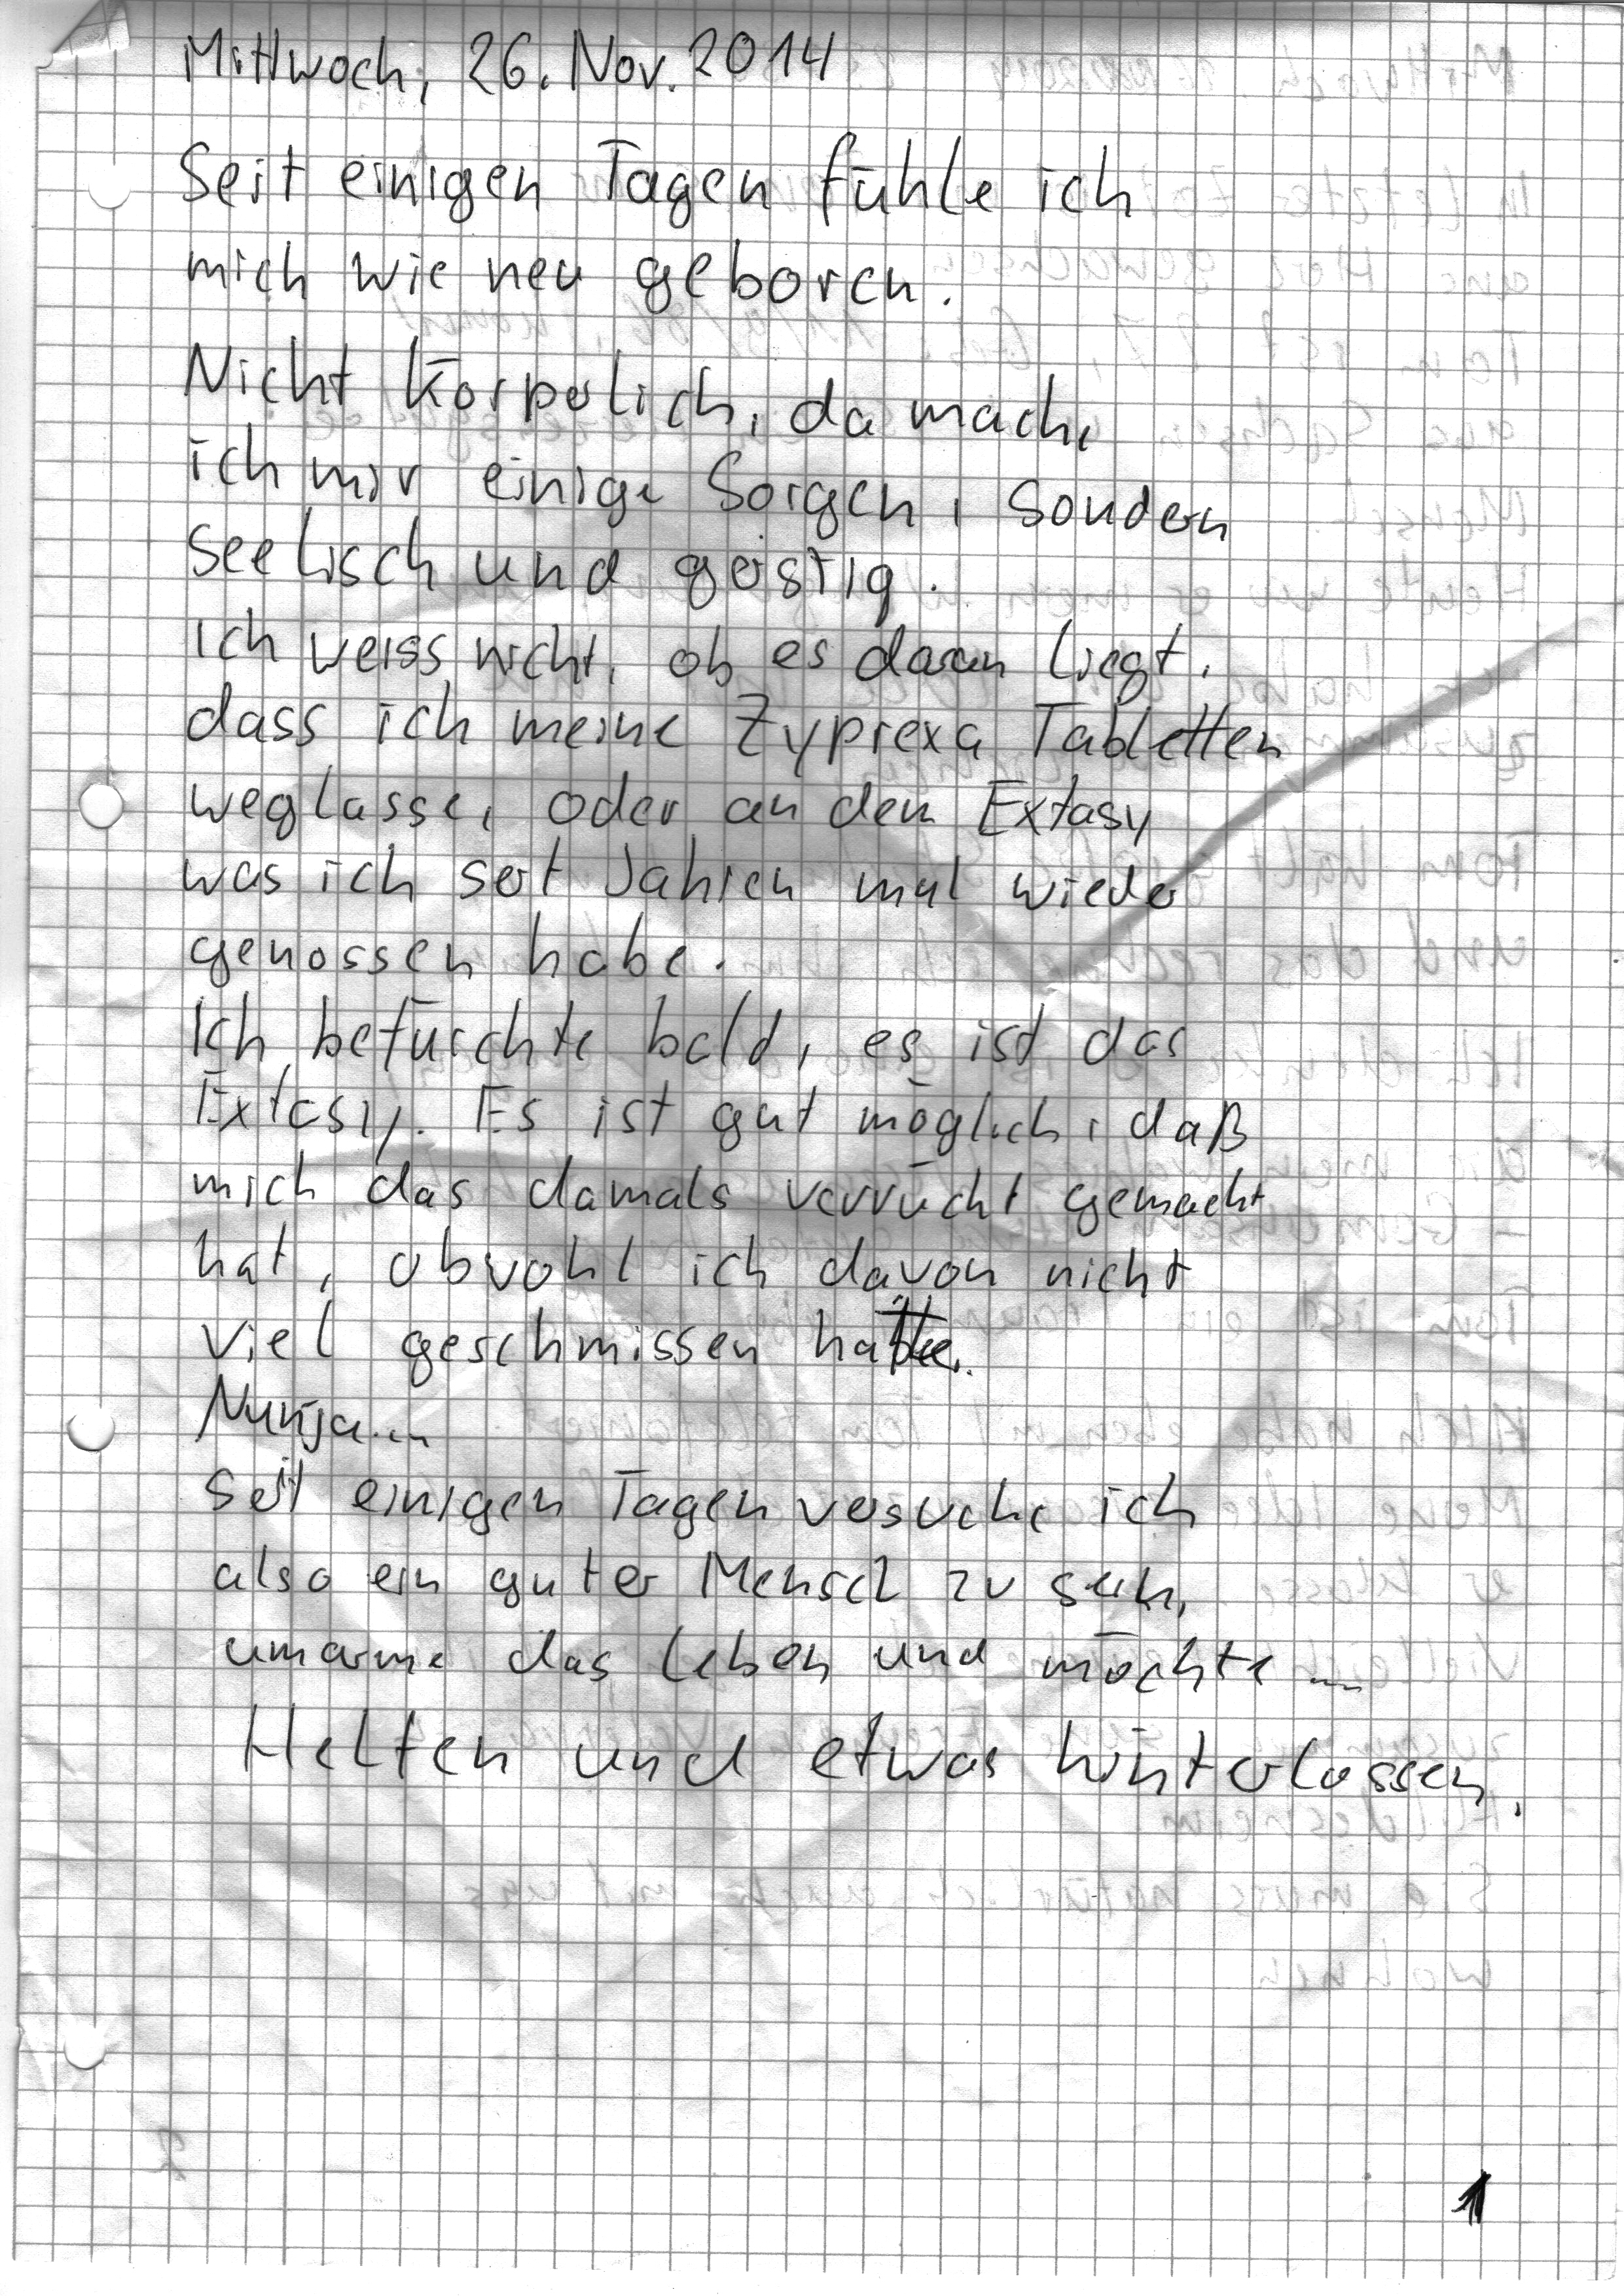 Mittwoch, 26. Nov. 2014
Seit einigen Tagen fühle ich
mich wie neu geboren.
Nicht körperlich, da mache
ich mir einige Sorgen, sondern
seelisch und geistig.
Ich weiss nicht, ob es daran liegt,
dass ich meine Zyprexa Tabletten
weglasse, oder an dem Extasy
was ich seit Jahren mal wieder
genossen habe.
Ich befürchte bald, es ist das
Extasy. Es ist gut möglich, daß
mich das damals verrückt gemacht
hat, obwohl ich davon nicht
viel geschmissen hatte.
Nunja...
Seit einigen Tagen versuche ich
also ein guter Mensch zu sein,
umarme das Leben und möchte ...
Helfen und etwas hinterlassen.
1